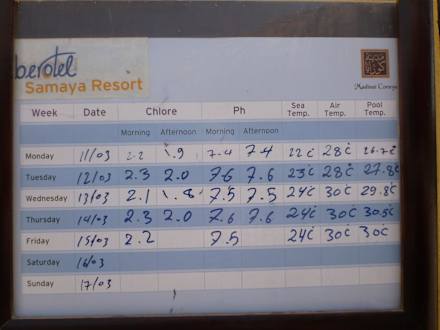 berotel
Samaya Resort
Madinat Coraya
Week Date Chlore Ph Sea Temp. Air Temp. Pool Temp.
Morning Afternoon Morning Afternoon
Monday 11/03 2.2 1.9 7.4 7.4 22c 28c 26.7c
Tuesday 12/03 2.3 2.0 7.6 7.6 23c 28c 27.8c
Wednesday 13/03 2.1 1.8 7.5 7.5 24c 30c 29.8c
Thursday 14/03 2.3 2.0 7.6 7.6 24c 30c 30.5c
Friday 15/03 2.2 7.5 24c 30c 30c
Saturday 16/03
Sunday 17/03